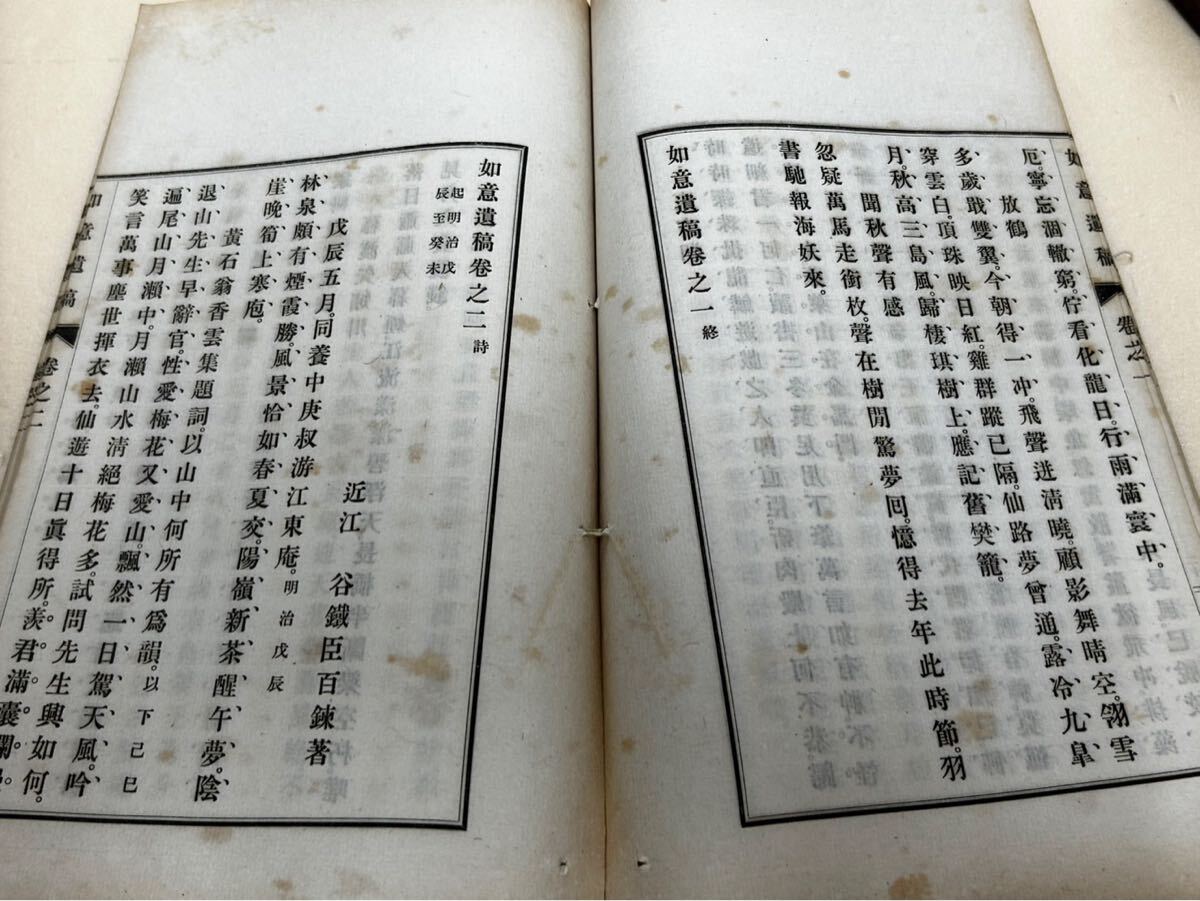 如意遺稿 卷之一
厄、寧忘涸轍窮。佇看化龍日、行雨滿寰中。
放鶴
多歲戢雙翼、今朝得一冲。飛聲迸淸曉、顧影舞晴空。翎雪
穿雲白、頂珠映日紅。雞群蹤已隔、仙路夢曾通。露冷九皐
月、秋高三島風。歸棲琪樹上、應記舊樊籠。
聞秋聲有感
忽疑萬馬走銜枚、聲在樹閒驚夢回。憶得去年此時節、羽
書馳報海妖來。
如意遺稿卷之一終
如意遺稿卷之二 詩
起明治戊
辰至癸未
近江 谷鐵臣百鍊著
戊辰五月、同養中庚叔游江東庵。明治戊辰
林泉頗有煙霞勝、風景恰如春夏交。陽嶺新茶醒午夢、陰
崖晚筍上寒庖。
黃石翁香雲集題詞、以山中何所有爲韻。以下己巳
退山先生早辭官、性愛梅花又愛山。飄然一日駕天風、吟
遍尾山月瀨中。月瀨山水淸絕梅花多、試問先生興如何。
笑言萬事塵世揮衣去、仙遊十日眞得所。羨君滿囊
如意遺稿 卷之二